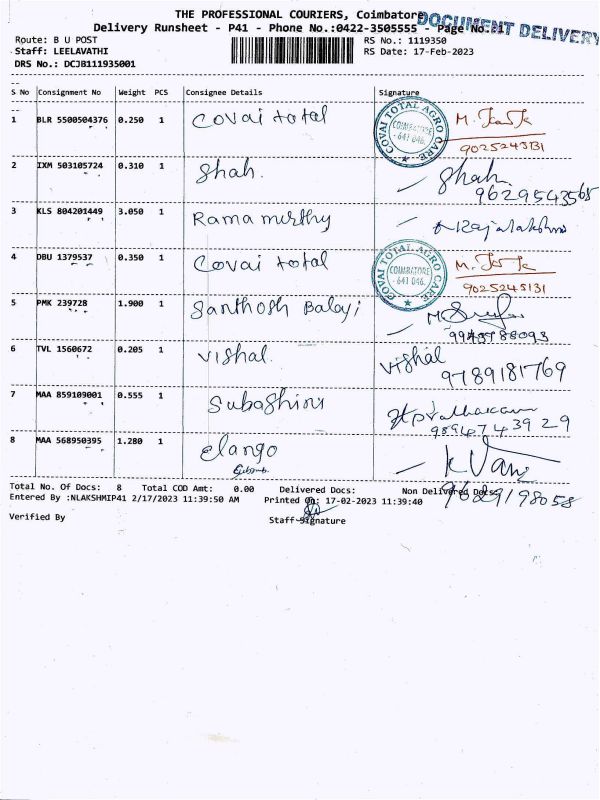 THE PROFESSIONAL COURIERS, Coimbatore
DOCUMENT DELIVERY
Delivery Runsheet - P41 - Phone No.:0422-3505555 - Page No.:1
Route: B U POST
RS No.: 1119350
Staff: LEELAVATHI
RS Date: 17-Feb-2023
DRS No.: DCJB111935001
S No Consignment No Weight PCS Consignee Details Signature
1 BLR 5500504376 0.250 1 Covai total
COVAI TOTAL AGRO CARE
COIMBATORE
-641 046.
9025243131
2 IXM 503105724 0.310 1 Shah. Shah
9629543568
3 KLS 804201449 3.050 1 Rama murthy
4 DBU 1379537 0.350 1 Covai total
COVAI TOTAL AGRO CARE
COIMBATORE
-641 046.
9025245131
5 PMK 239728 1.900 1 Santhosh Balaji
6 TVL 1560672 0.205 1 Vishal. Vishal
9789181769
7 MAA 859109001 0.555 1 Subashini
9894743929
8 MAA 568950395 1.280 1 elango
Total No. Of Docs: 8 Total COD Amt: 0.00 Delivered Docs: Non Delivered Docs:
Entered By :NLAKSHMIP41 2/17/2023 11:39:50 AM Printed On: 17-02-2023 11:39:40
9689198058
Verified By
Staff Signature